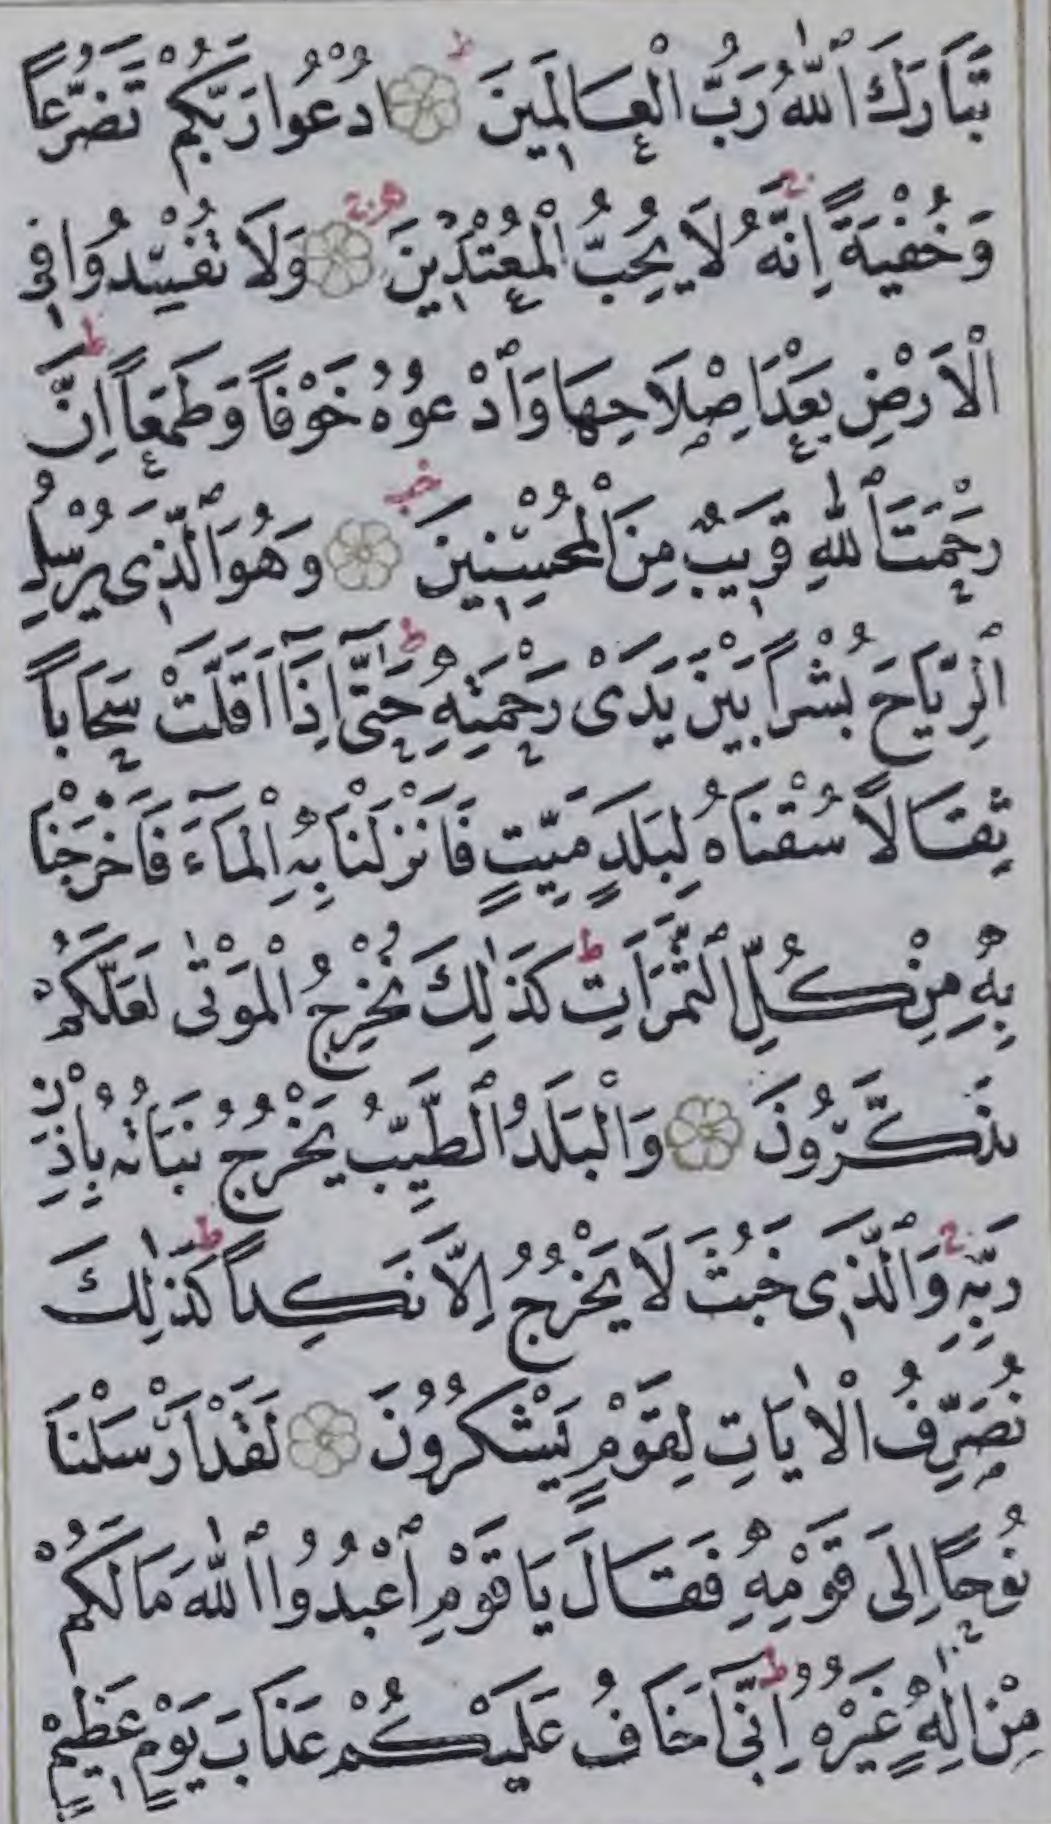 تَبَارَكَ ٱللّٰهُ رَبُّ الْعَالَمِينَ ۞ اُدْعُوا رَبَّكُمْ تَضَرُّعاً
وَخُفْيَةً اِنَّهُ لَا يُحِبُّ الْمُعْتَدِينَ ۞ وَلَا تُفْسِدُوا فِي
الْاَرْضِ بَعْدَ اِصْلَاحِهَا وَٱدْعُوهُ خَوْفاً وَطَمَعاً اِنَّ
رَحْمَتَ ٱللّٰهِ قَرِيبٌ مِنَ الْمُحْسِنِينَ ۞ وَهُوَ ٱلَّذِى يُرْسِلُ
ٱلرِّيَاحَ بُشْراً بَيْنَ يَدَىْ رَحْمَتِهِ حَتّٰٓى اِذَٓا اَقَلَّتْ سَحَاباً
ثِقَالاً سُقْنَاهُ لِبَلَدٍ مَيِّتٍ فَاَنْزَلْنَا بِهِ الْمَٓاءَ فَاَخْرَجْنَا
بِهِ مِنْ كُلِّ ٱلثَّمَرَاتِ كَذٰلِكَ نُخْرِجُ الْمَوْتٰى لَعَلَّكُمْ
تَذَكَّرُونَ ۞ وَالْبَلَدُ ٱلطَّيِّبُ يَخْرُجُ نَبَاتُهُ بِاِذْنِ
رَبِّهِ وَٱلَّذِى خَبُثَ لَا يَخْرُجُ اِلَّا نَكِداً كَذٰلِكَ
نُصَرِّفُ الْاٰيَاتِ لِقَوْمٍ يَشْكُرُونَ ۞ لَقَدْ اَرْسَلْنَا
نُوحاً اِلَى قَوْمِهِ فَقَالَ يَا قَوْمِ ٱعْبُدُوا ٱللّٰهَ مَا لَكُمْ
مِنْ اِلٰهٍ غَيْرُهُ اِنِّٓى اَخَافُ عَلَيْكُمْ عَذَابَ يَوْمٍ عَظِيمٍ